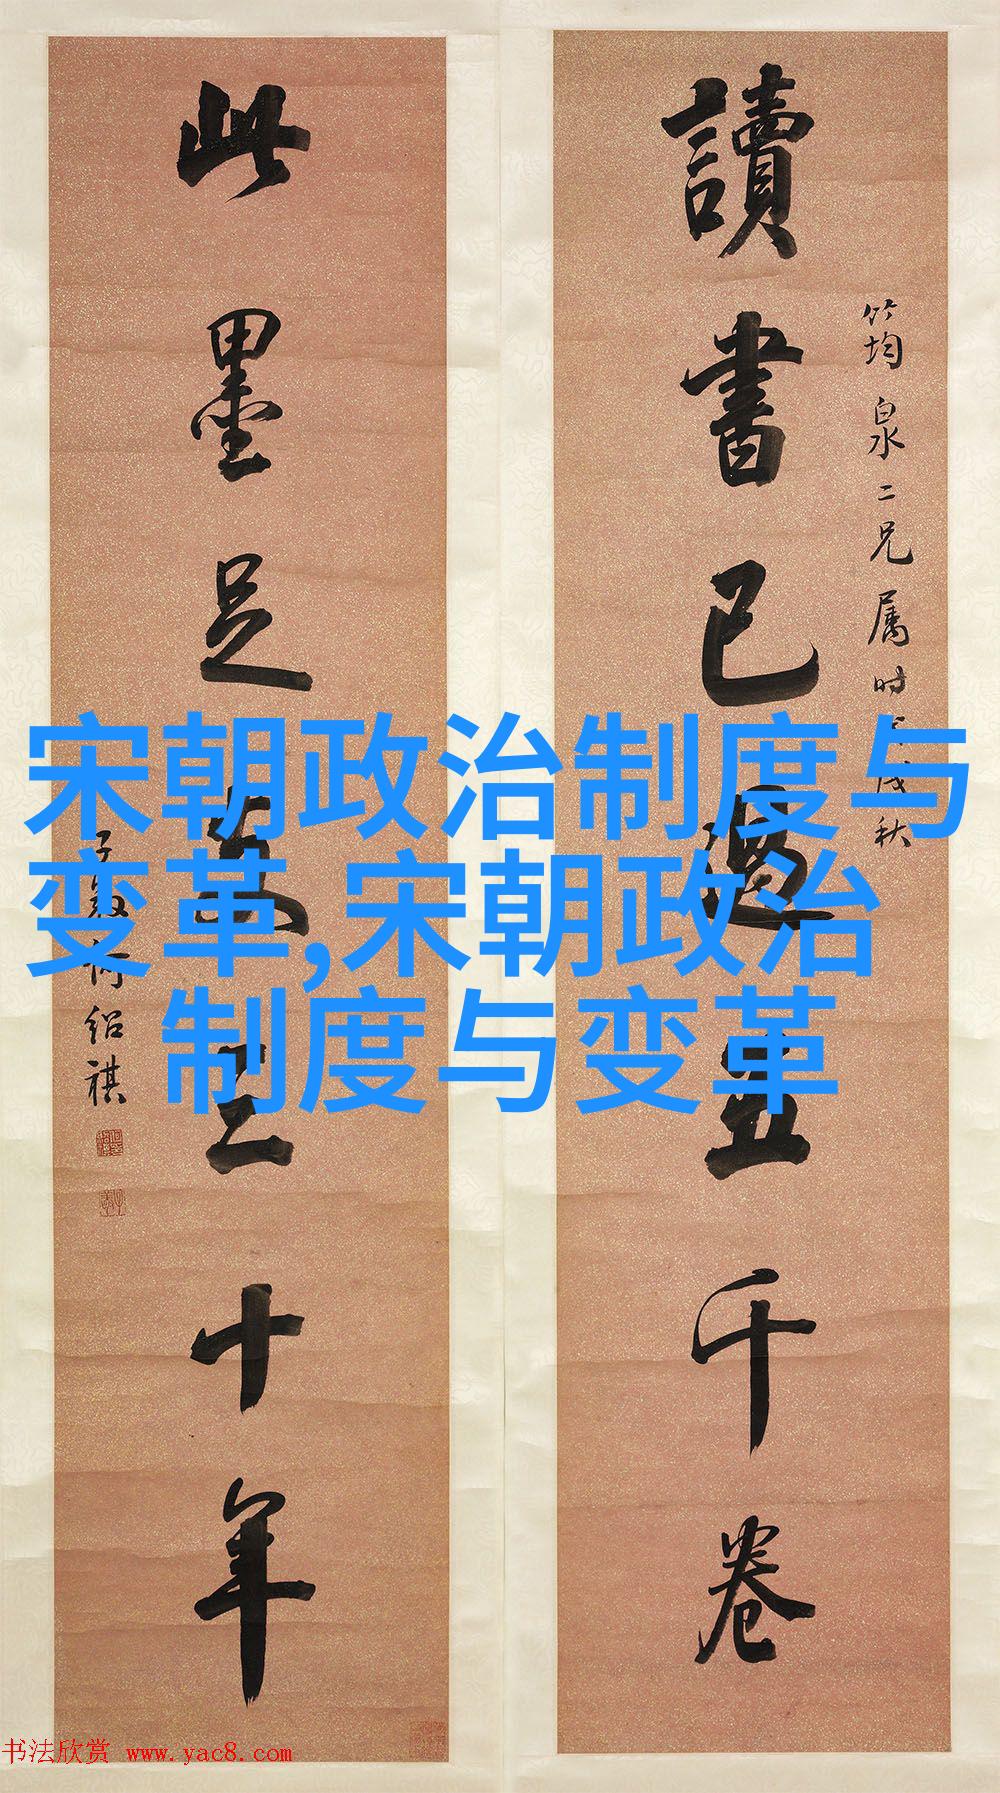 讀書已過五千卷
竹均泉二兄属时戌秋
此墨足支三十年
子敬何紹祺
宋朝政治制度与
变革,宋朝政治
制度与变革
书法欣赏 www.yac8.com